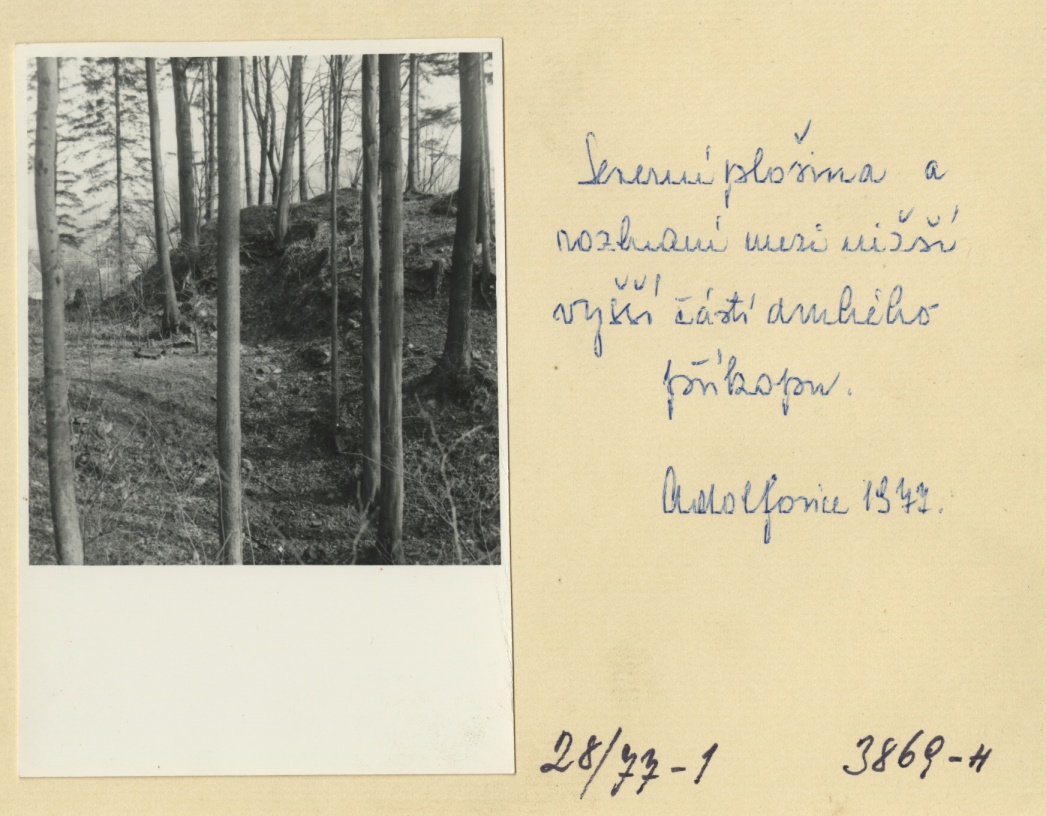 Severní plošina a
rozhraní mezi nižší
vyšší částí druhého
příkopu.
Adolfovice 1977.
28/77-1
3869-H